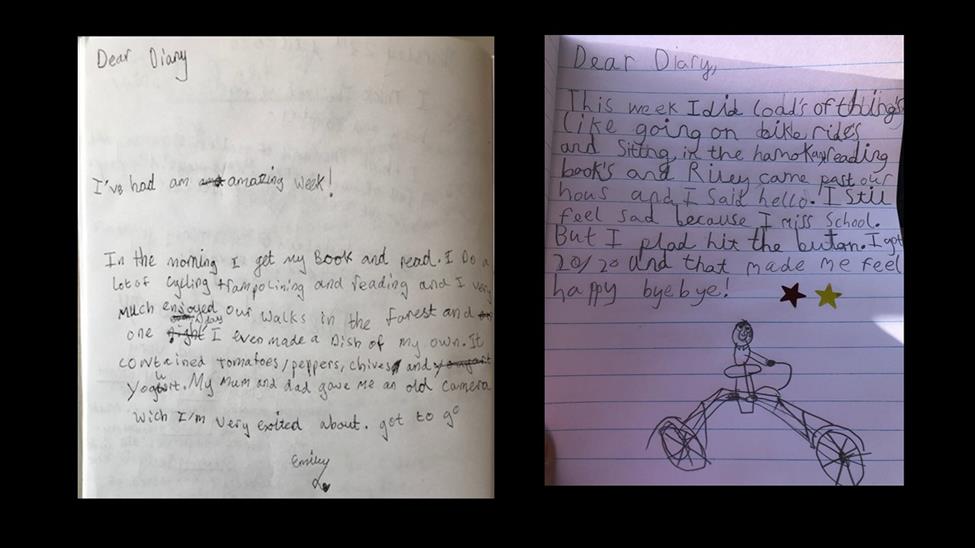 Dear Diary
I've had am amazing week!
In the morning I get my Book and read. I Do a
lot of cycling trampolining and reading and I very
much enjoyed our walks in the forest and
one Day I even made a Dish of my own. It
contained tomatoes/peppers, chives and
Yoghurt. My mum and dad gave me an old camera
wich I'm very exited about. got to go
Emiley
Dear Diary,
This week I did load's of thing's
like going on bike ride's
and Sitting in the hamok and reading
book's and Riley came past our
hous and I Said hello. I Still
feel sad because I miss School.
But I plad hit the butan. I got
20/20 and that made me feel
happy byebye!